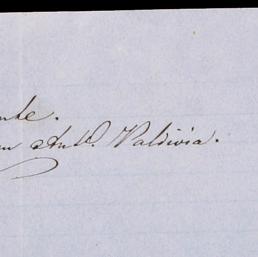 nte.
n Ant.º Valdivia.